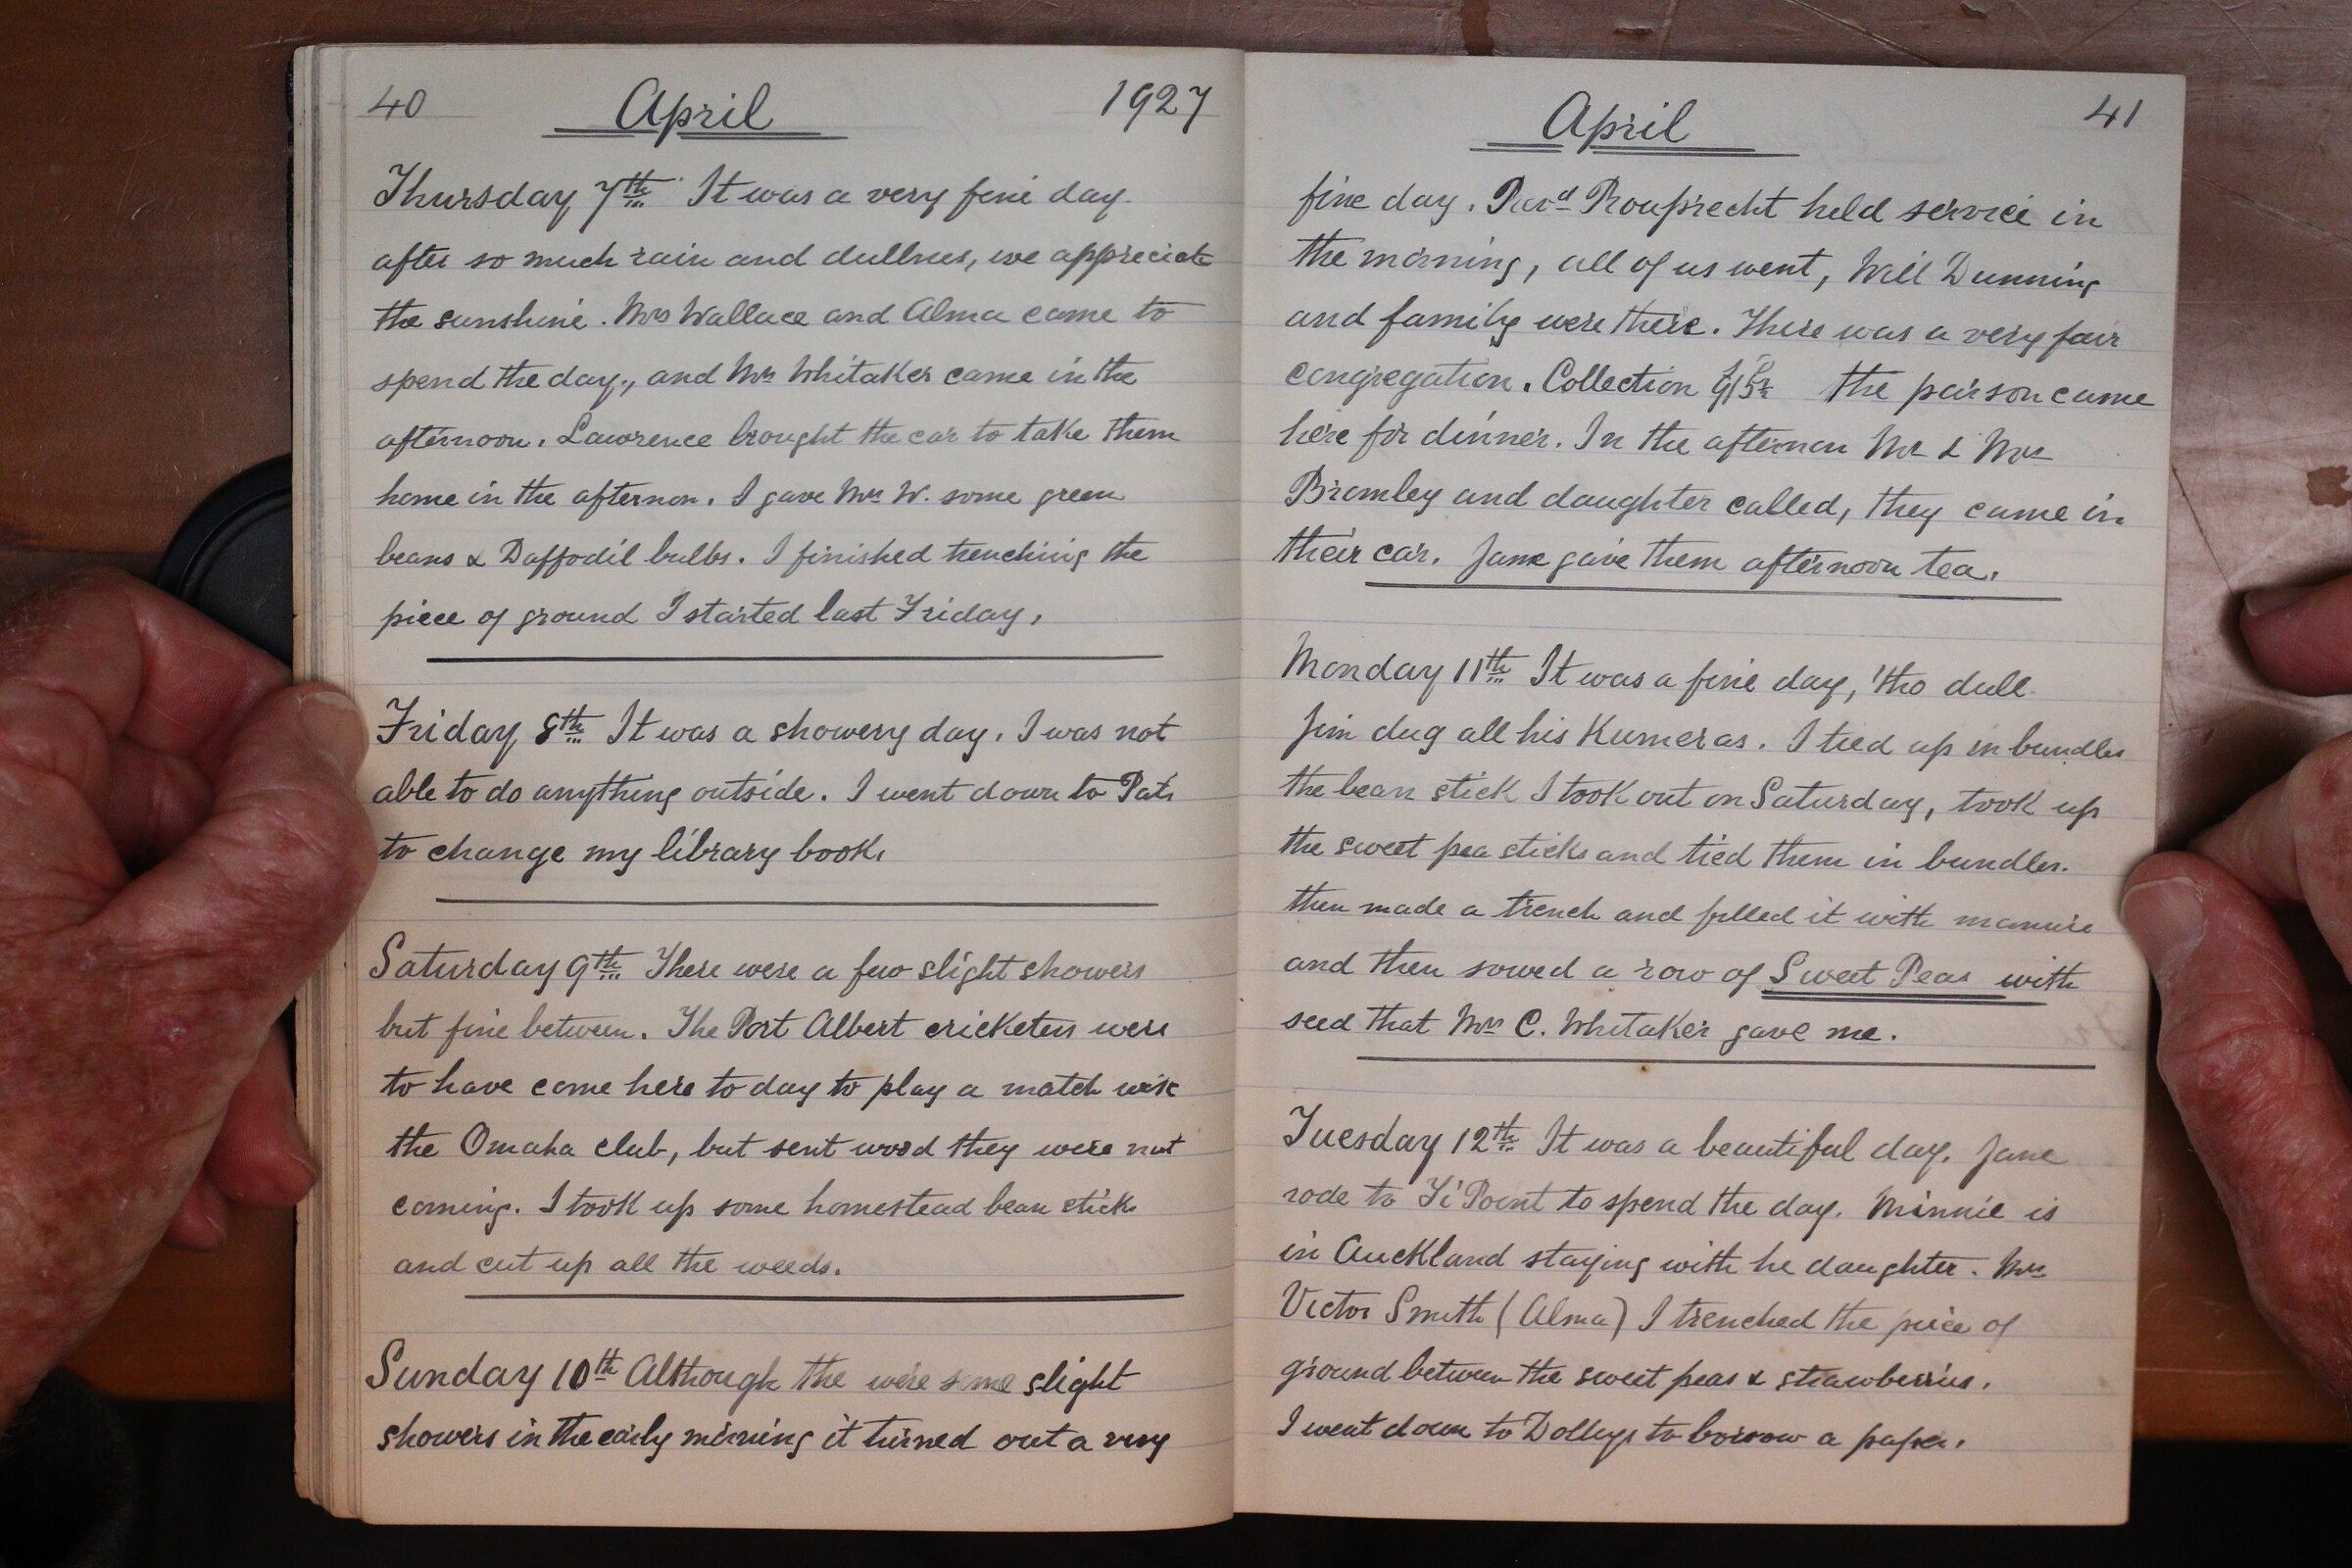 40 April 1927
Thursday 7th It was a very fine day
after so much rain and dullness, we appreciate
the sunshine. Mrs Wallace and Alma came to
spend the day., and Mrs Whitaker came in the
afternoon. Lawrence brought the car to take them
home in the afternon. I gave Mrs W. some green
beans & Daffodil bulbs. I finished trenching the
piece of ground I started last Friday.
Friday 8th It was a showery day. I was not
able to do anything outside. I went down to Pat's
to change my library book.
Saturday 9th There were a few slight showers
but fine between. The Port Albert cricketers were
to have come here to day to play a match with
the Omaha club, but sent word they were not
coming. I took up some homestead bean sticks
and cut up all the weeds.
Sunday 10th Although the were some slight
showers in the early morning it turned out a very
April 41
fine day. Revd Rouprecht held service in
the morning, all of us went, Will Dunning
and family were there. There was a very fair
congregation. Collection the parson came
here for dinner. In the afternon Mr & Mrs
Bromley and daughter called, they came in
their car. Jane gave them afternoon tea.
Monday 11th It was a fine day, 'tho dull
Jim dug all his Kumeras. I tied up in bundles
the bean stick I took out on Saturday, took up
the sweet pea sticks and tied them in bundles.
then made a trench and filled it with manure
and then sowed a row of Sweet Peas with
seed that Mrs C. Whitaker gave me.
Tuesday 12th It was a beautiful day. Jane
rode to Ti Point to spend the day. Minnie is
in Auckland staying with he daughter. Mrs
Victor Smith (Alma) I trenched the piece of
ground between the sweet peas & strawberries.
I went down to Dollys to borrow a paper.